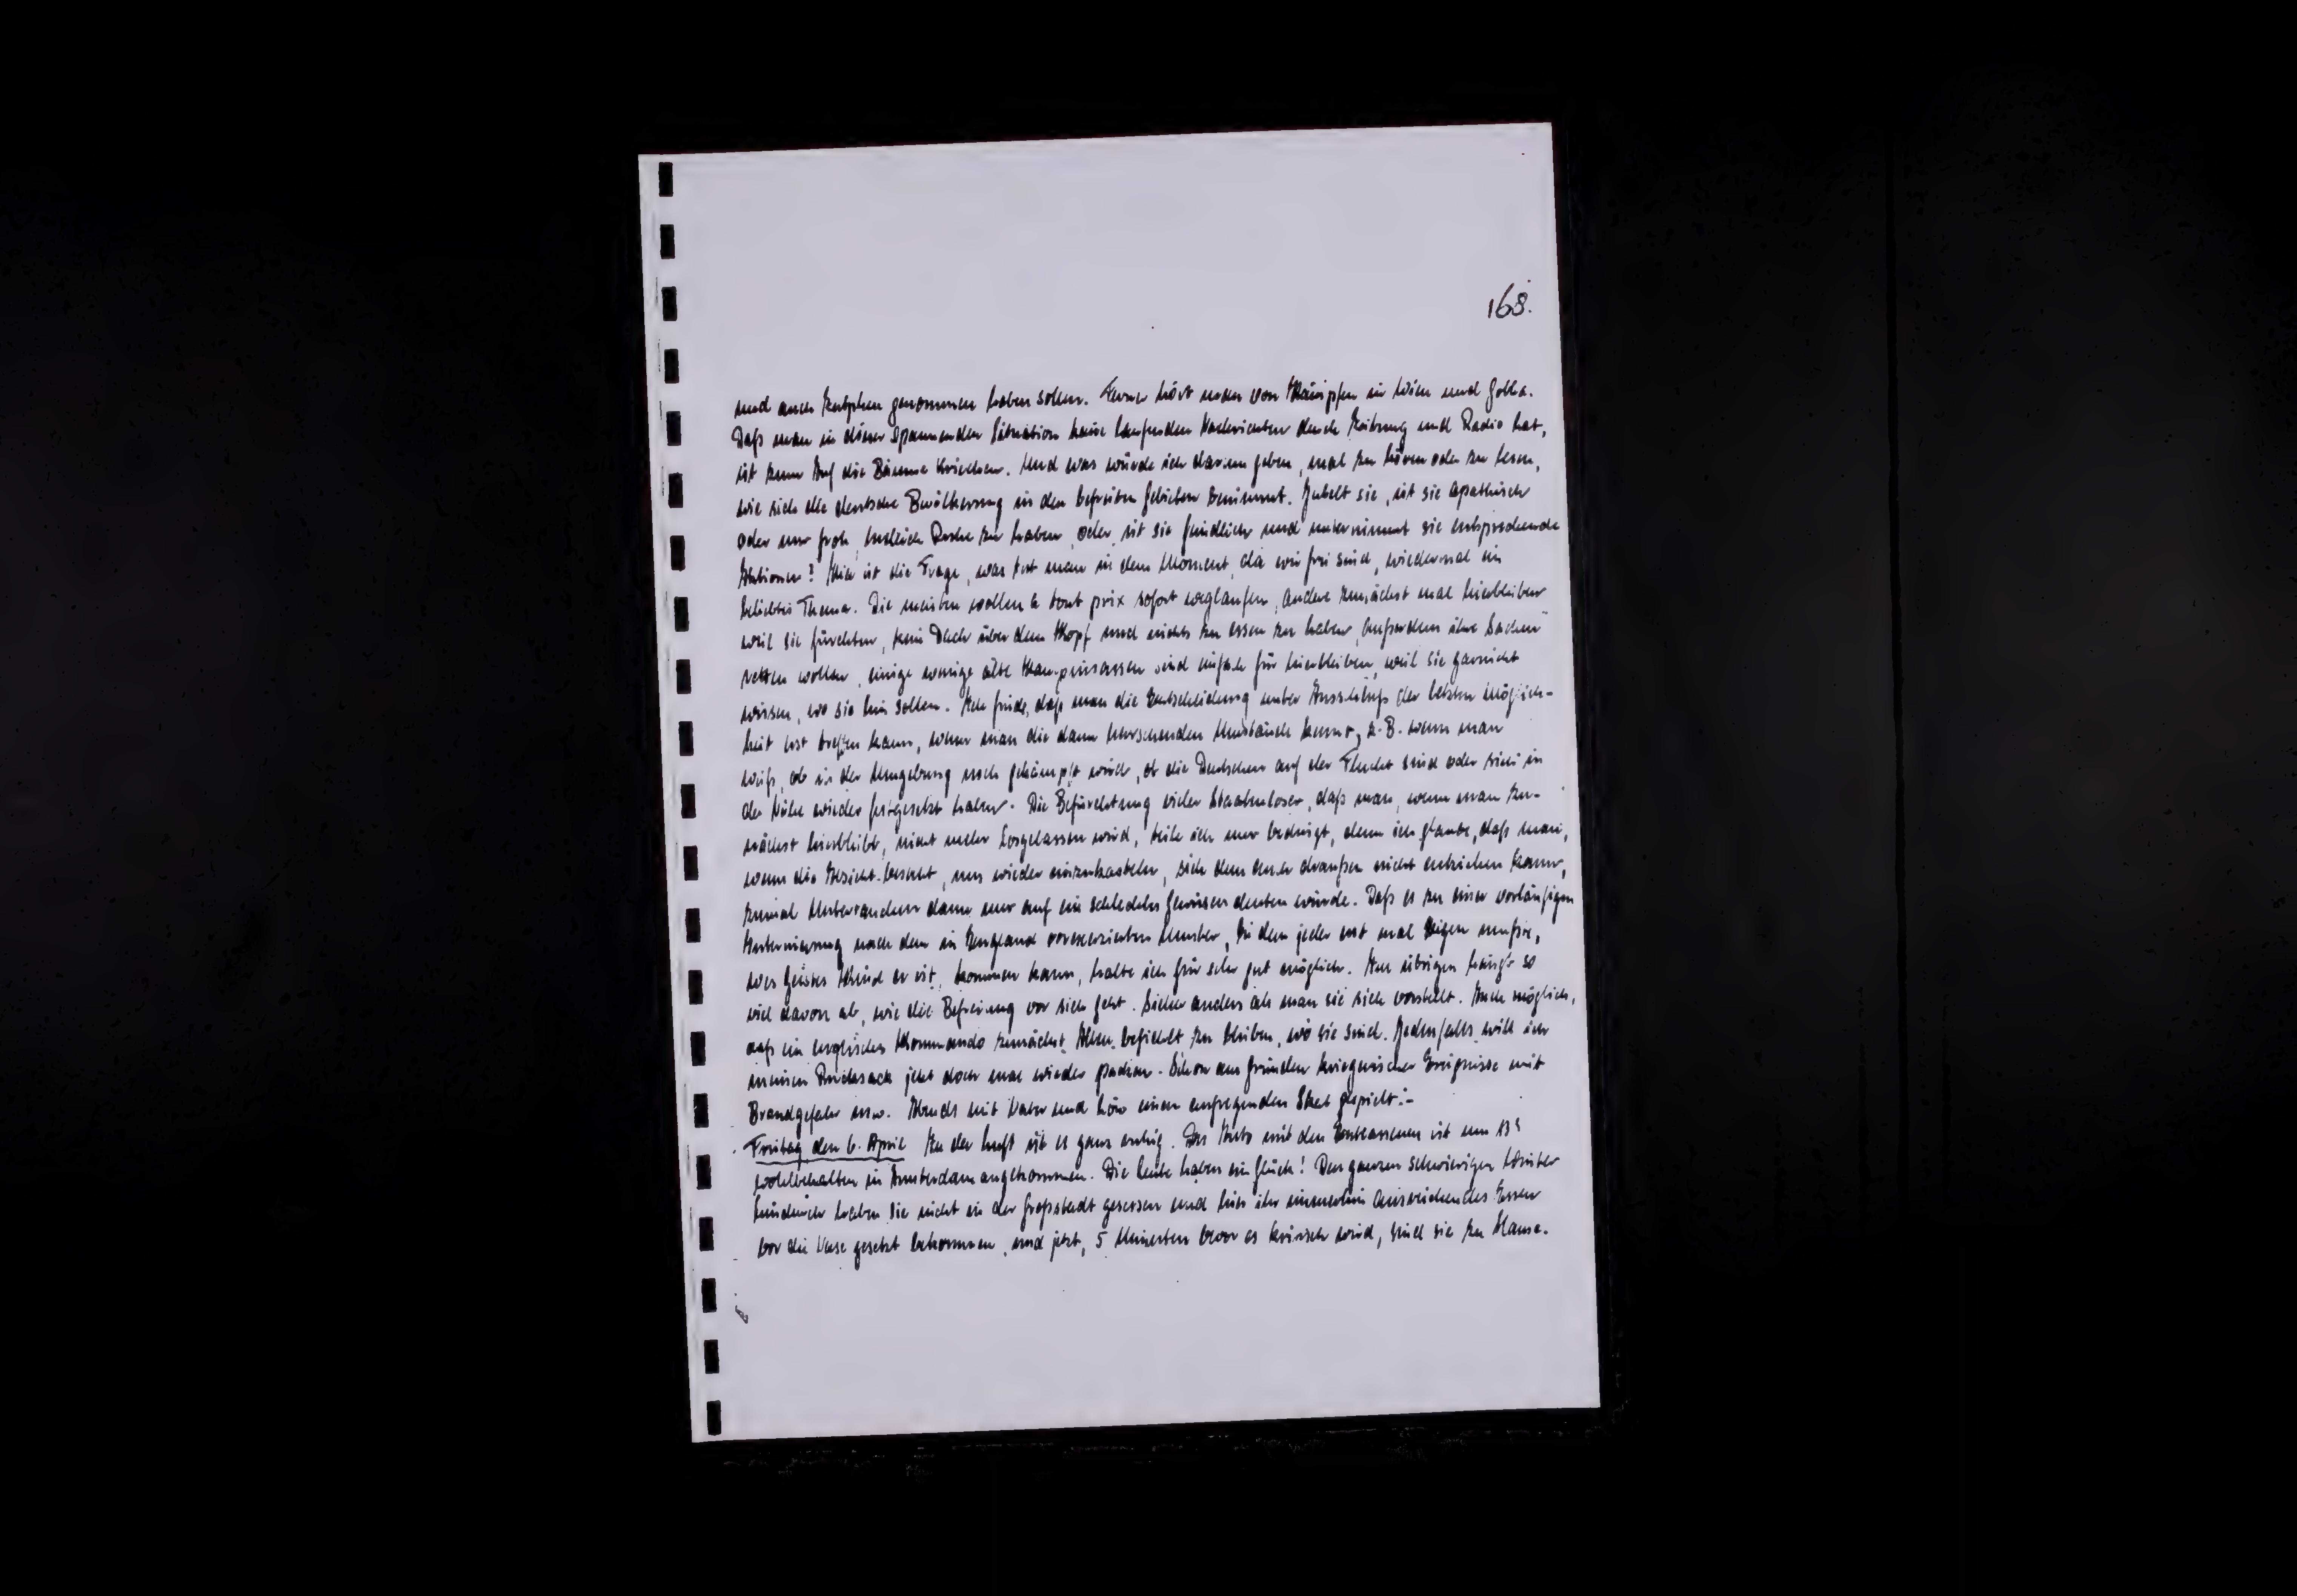 168.
und auch Zutphen genommen haben sollen. Ferner hört man von Kämpfen in Wien und Gotha.
Daß man in dieser spannenden Situation keine laufenden Nachrichten durch Zeitung und Radio hat,
ist zum Auf die Bäume kriechen. Und was würde ich darum geben, mal zu hören oder zu lesen,
wie sich die deutsche Bevölkerung in den befreiten Gebieten benimmt. Jubelt sie, ist sie apathisch
oder nur froh, endlich Ruhe zu haben, oder ist sie feindlich und unternimmt sie entsprechende
Aktionen? Hier ist die Frage, was tut man in dem Moment, da wir frei sind, wiedermal ein
beliebtes Thema. Die meisten wollen à tout prix sofort weglaufen, andere zunächst mal hierbleiben
weil sie fürchten, kein Dach über dem Kopf und nichts zu essen zu haben, außerdem ihre Sachen
retten wollen, einige wenige alte Kampinsassen sind einfach für hierbleiben, weil sie garnicht
wissen, wo sie hin sollen. Ich finde, daß man die Entscheidung unter Ausschluß der letzten Möglich-
keit erst treffen kann, wenn man die dann herrschenden Umstände kennt, z.B. wenn man
weiß, ob in der Umgebung noch gekämpft wird, ob die Deutschen auf der Flucht sind oder sich in
der Nähe wieder festgesetzt haben. Die Befürchtung vieler Staatenloser, daß man, wenn man zu-
nächst hierbleibt, nicht mehr losgelassen wird, teile ich nur bedingt, denn ich glaube, daß man,
wenn die Absicht besteht, uns wieder einzukasteln, sich dem auch draußen nicht entziehen kann,
zumal Untertauchen dann nur auf ein schlechtes Gewissen deuten würde. Daß es zu einer vorläufigen
Internierung nach dem in England vorexerzierten Muster, bei dem jeder erst mal zeigen mußte,
wes Geistes Kind er ist, kommen kann, halte ich für sehr gut möglich. Im übrigen hängt so
viel davon ab, wie die Befreiung vor sich geht. Sicher anders als man sie sich vorstellt. Auch möglich,
daß ein englisches Kommando zunächst Allen befiehlt zu bleiben, wo sie sind. Jedenfalls will ich
meinen Rucksack jetzt doch mal wieder packen. Schon aus Gründen kriegerischer Ereignisse mit
Brandgefahr usw. Abends mit Vater und einen aufregenden Skat gespielt.-
Freitag den 6. April In der Luft ist es ganz ruhig. Das Auto mit den Entlassenen ist um
wohlbehalten in Amsterdam angekommen. Die Leute haben ein Glück! Den ganzen schwierigen Winter
hindurch haben sie nicht in der Großstadt gesessen und hier ihr immerhin ausreichendes Essen
vor die Nase gesetzt bekommen, und jetzt, 5 Minuten bevor es kritisch wird, sind sie zu Hause.